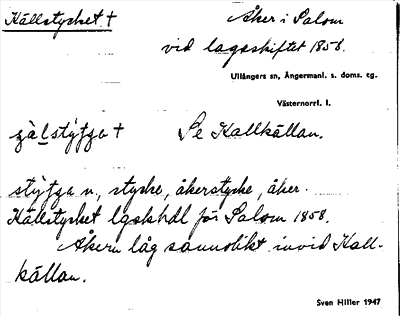 Källstycket † Åker i Salom
vid lagaskiftet 1858.
Ullångers sn, Ångermanl. s. doms. tg.
Västernorrl. l.
Se Kallkällan.
n., stycke, åkerstycke, åker.
Källstycket lgskhdl för Salom 1858.
Åkern låg sannolikt invid Kall-
källan.
Sven Hiller 1947